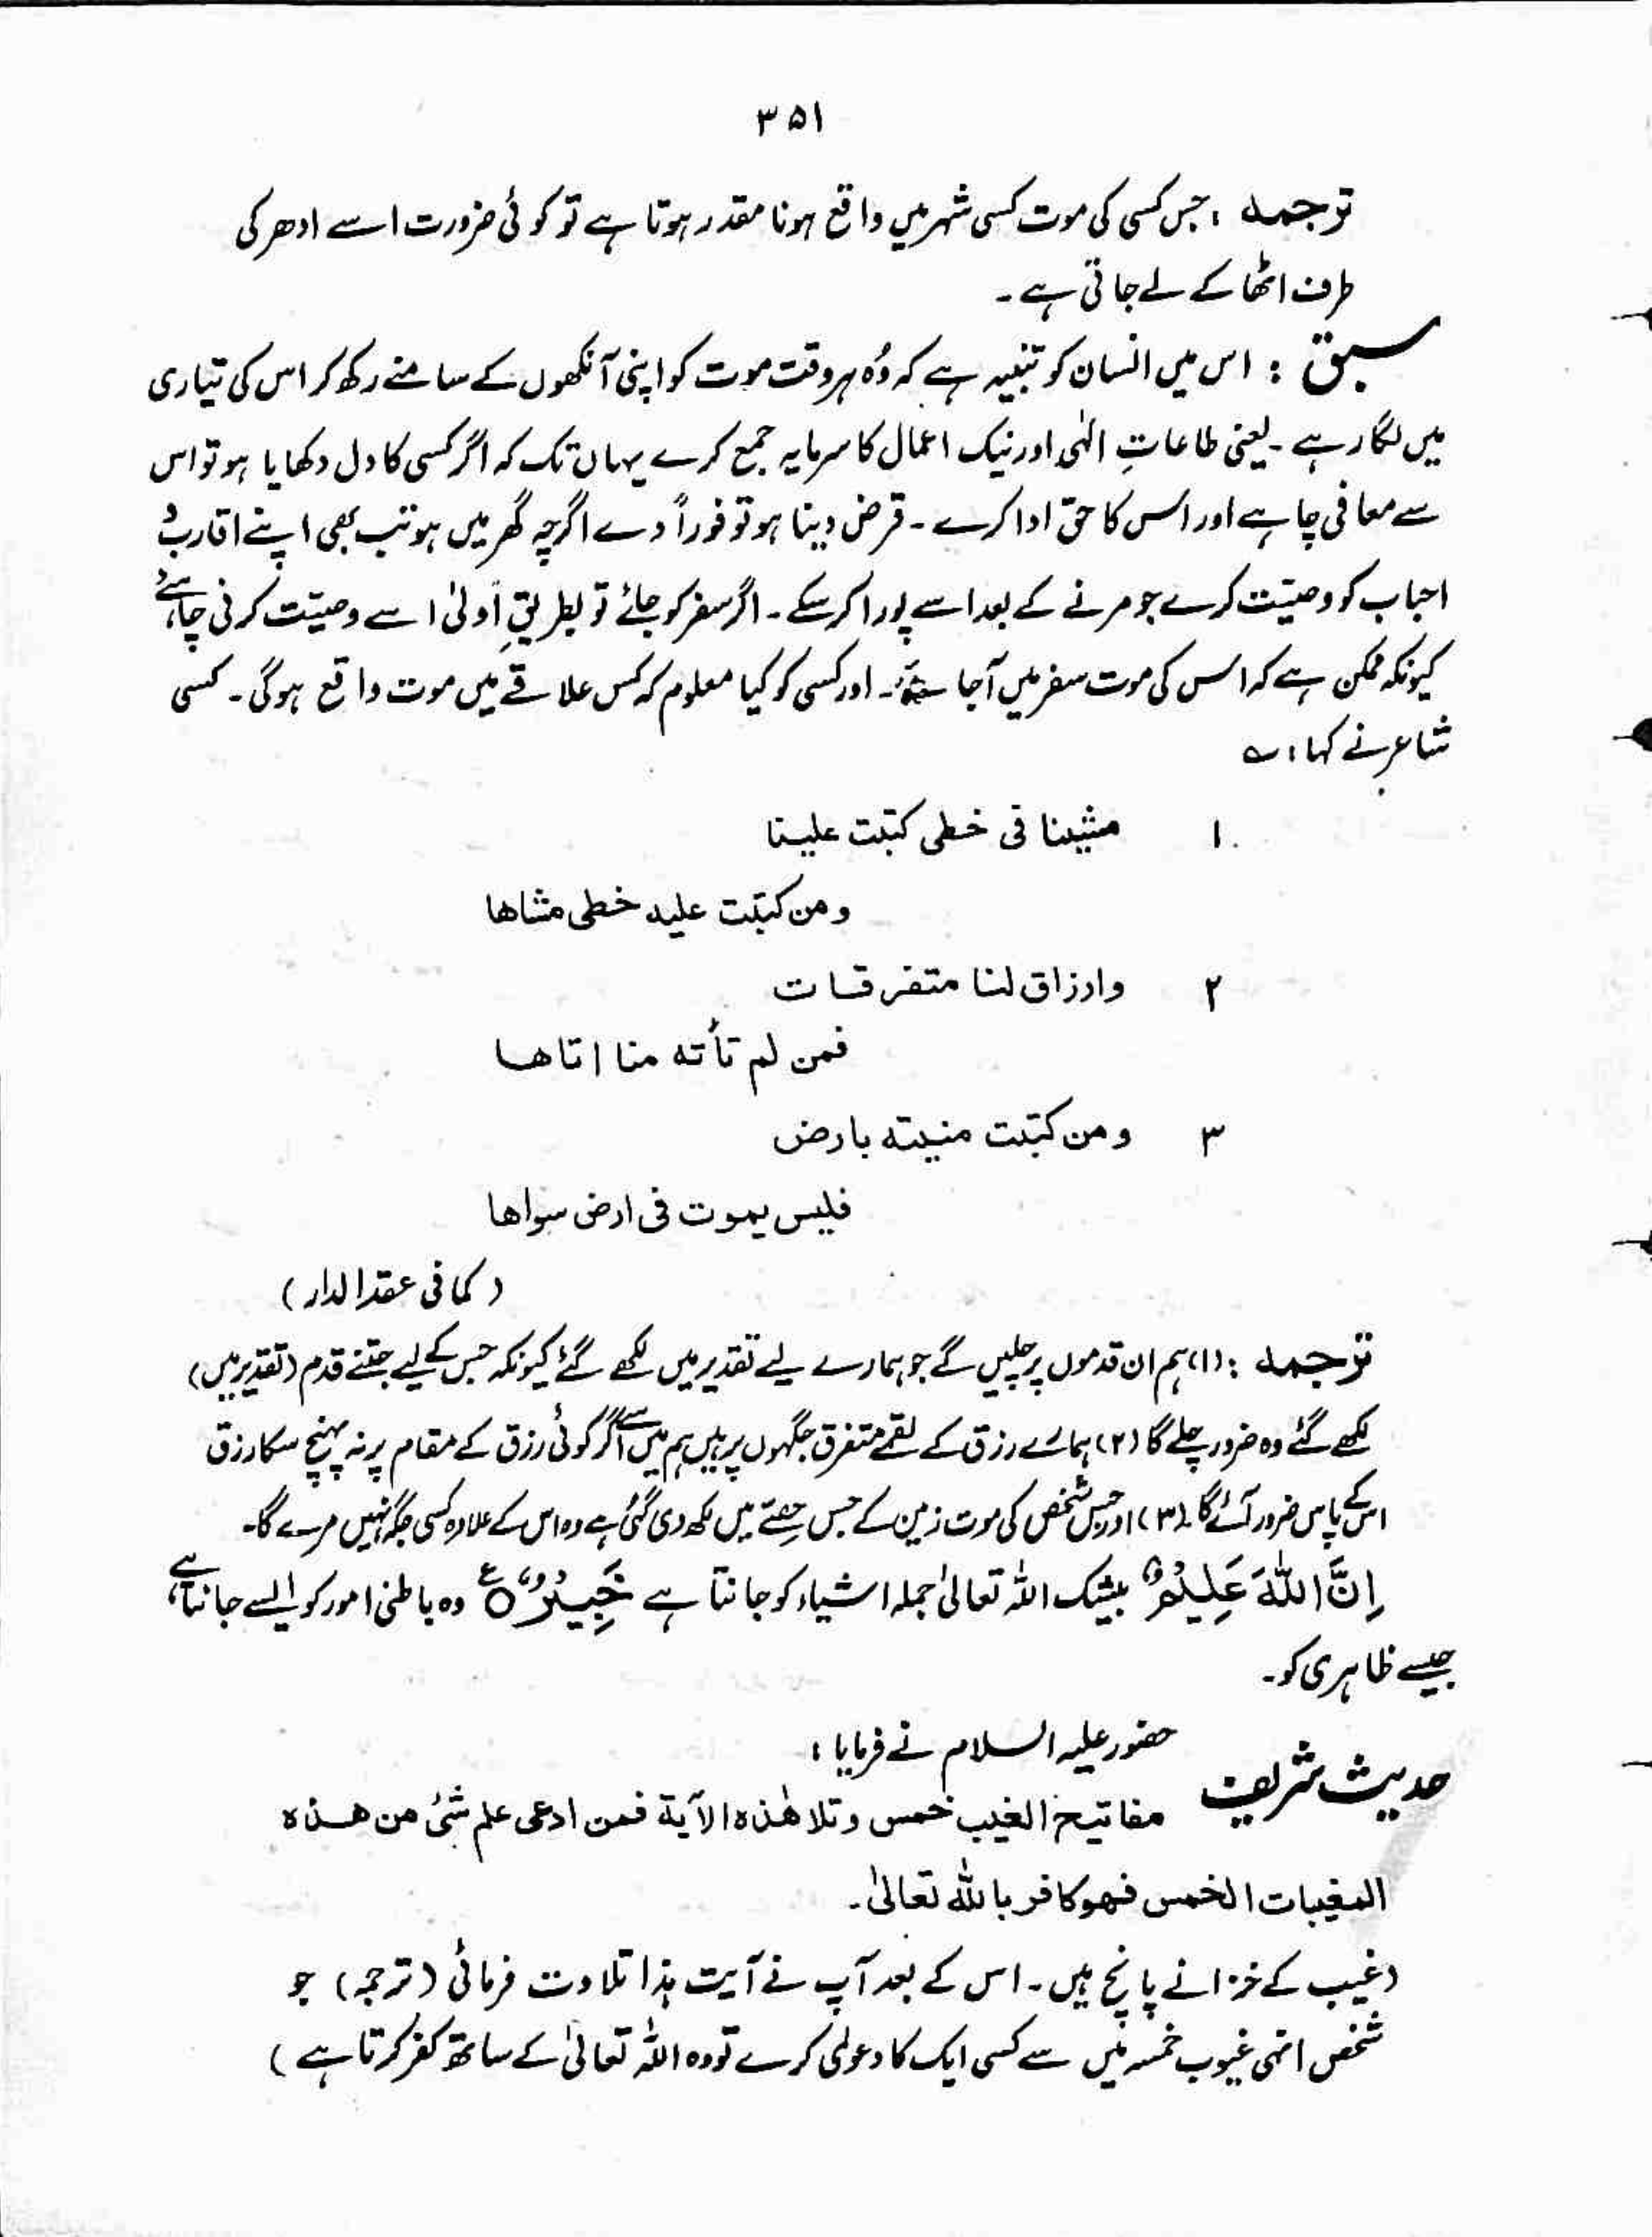 ۳۵۱
ترجمہ : جس کسی کی موت کسی شہر میں واقع ہونا مقدر ہوتا ہے تو کوئی ضرورت اسے ادھر کی
طرف اٹھا کے لے جاتی ہے۔
سبق : اس میں انسان کو تنبیہ ہے کہ وُہ ہر وقت موت کو اپنی آنکھوں کے سامنے رکھ کر اس کی تیاری
میں لگا رہے ۔ یعنی طاعاتِ الٰہی اور نیک اعمال کا سرمایہ جمع کرے یہاں تک کہ اگر کسی کا دل دکھایا ہو تو اس
سے معافی چاہے اور اس کا حق ادا کرے ۔ قرض دینا ہو تو فوراً دے اگرچہ گھر میں ہو تب بھی اپنے اقارب و
احباب کو وصیّت کرے جو مرنے کے بعد اسے پورا کرسکے ۔ اگر سفر کو جائے تو بطریقِ اَولیٰ اسے وصیّت کرنی چاہئے
کیونکہ ممکن ہے کہ اس کی موت سفر میں آجائے۔ اور کسی کو کیا معلوم کہ کس علاقے میں موت واقع ہوگی ۔ کسی
شاعر نے کہا : ؎
۱ مشینا فی خطی کتبت علینا
ومن کتبت علیه خطی مشاها
۲ وارزاق لنا متفرقات
فمن لم تأته منا اتاها
۳ ومن کتبت منیته بارض
فلیس یموت فی ارض سواها
( کما فی عقد الدار )
ترجمہ : (۱) ہم ان قدموں پر چلیں گے جو ہمارے لیے تقدیر میں لکھے گئے کیونکہ جس کے لیے جتنے قدم (تقدیر میں)
لکھے گئے وہ ضرور چلے گا (۲) ہمارے رزق کے لقمے متفرق جگہوں پر ہیں ہم میں سے اگر کوئی رزق کے مقام پر نہ پہنچ سکا رزق
اس کے پاس ضرور آئے گا ۔ (۳) اور جس شخص کی موت زمین کے جس حصّے میں لکھ دی گئی ہے وہ اس کے علاوہ کسی جگہ نہیں مرے گا۔
اِنَّ اللّٰهَ عَلِیْمٌ بیشک اللہ تعالیٰ جملہ اشیاء کو جانتا ہے خَبِیْرٌ ۝ع وہ باطنی امور کو ایسے جانتا ہے
جیسے ظاہری کو۔
حضور علیہ السلام نے فرمایا :
حدیث شریف مفاتیح الغیب خمس وتلا هٰذه الآیة فمن ادعی علم شئ من هذه
المغیبات الخمس فهو کافر باللہ تعالیٰ۔
(غیب کے خزانے پانچ ہیں ۔ اس کے بعد آپ نے آیت ہٰذا تلاوت فرمائی (ترجمہ) جو
شخص انہی غیوب خمسہ میں سے کسی ایک کا دعوٰی کرے تو وہ اللہ تعالیٰ کے ساتھ کفر کرتا ہے )